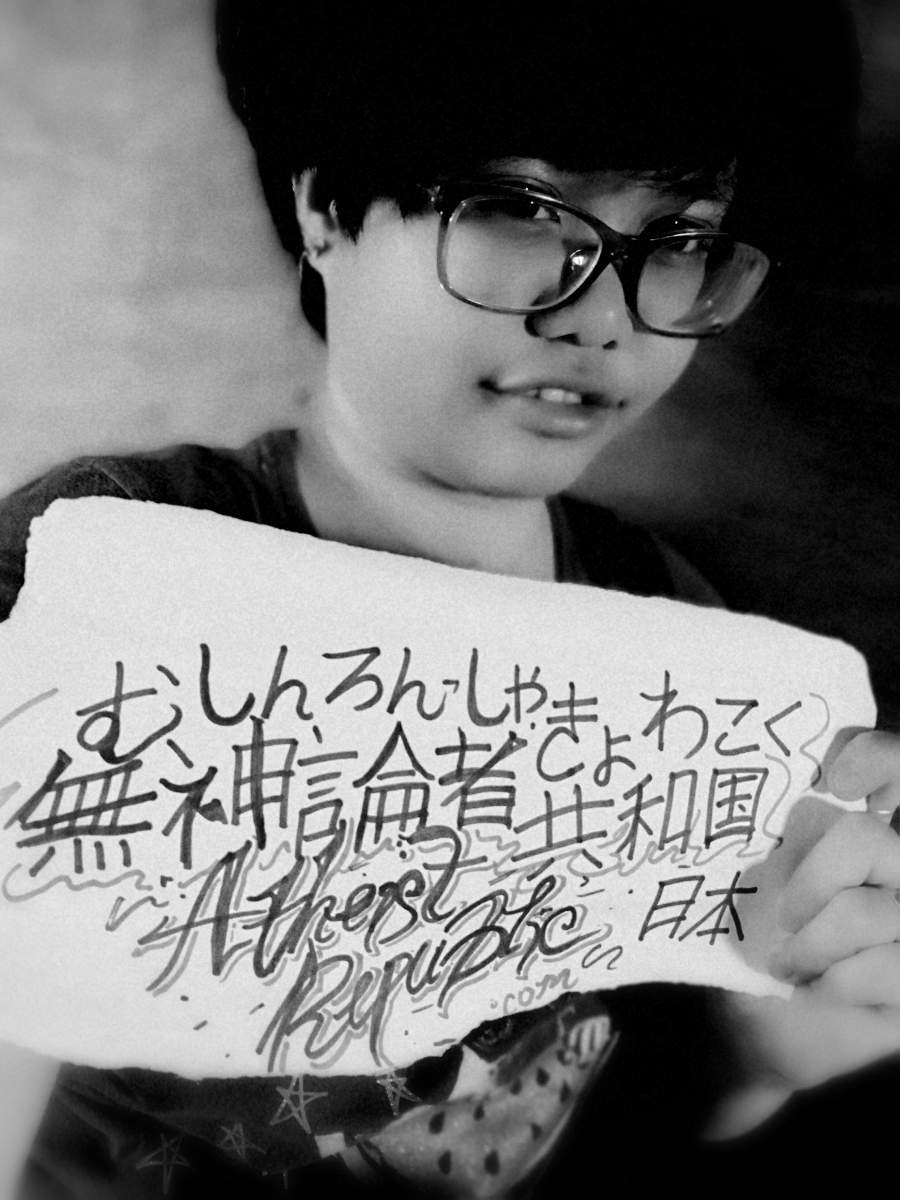 むしんろんしゃきょわこく
無神論者共和国
Atheist
Republic
.com
日本